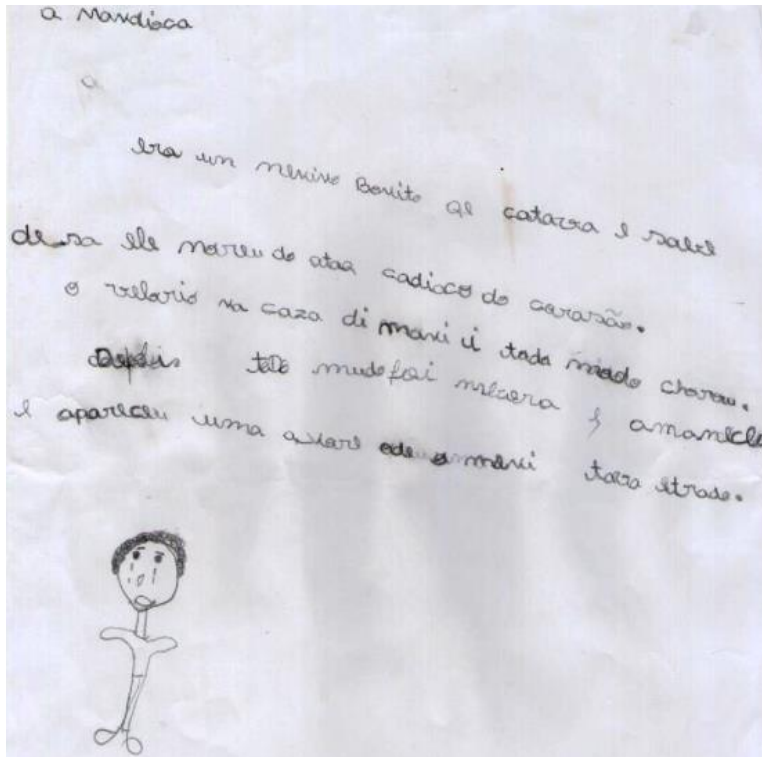 a mandioca
era un menino Bonito qe catava e sabe
de sa ele moreu do ataq cadiaco do corasão.
o velorio na caza di mani i toda mudo chorou.
Depois todo mudo foi mecera e amanheceu
e apareceu uma avore ode o mani tava etrado.